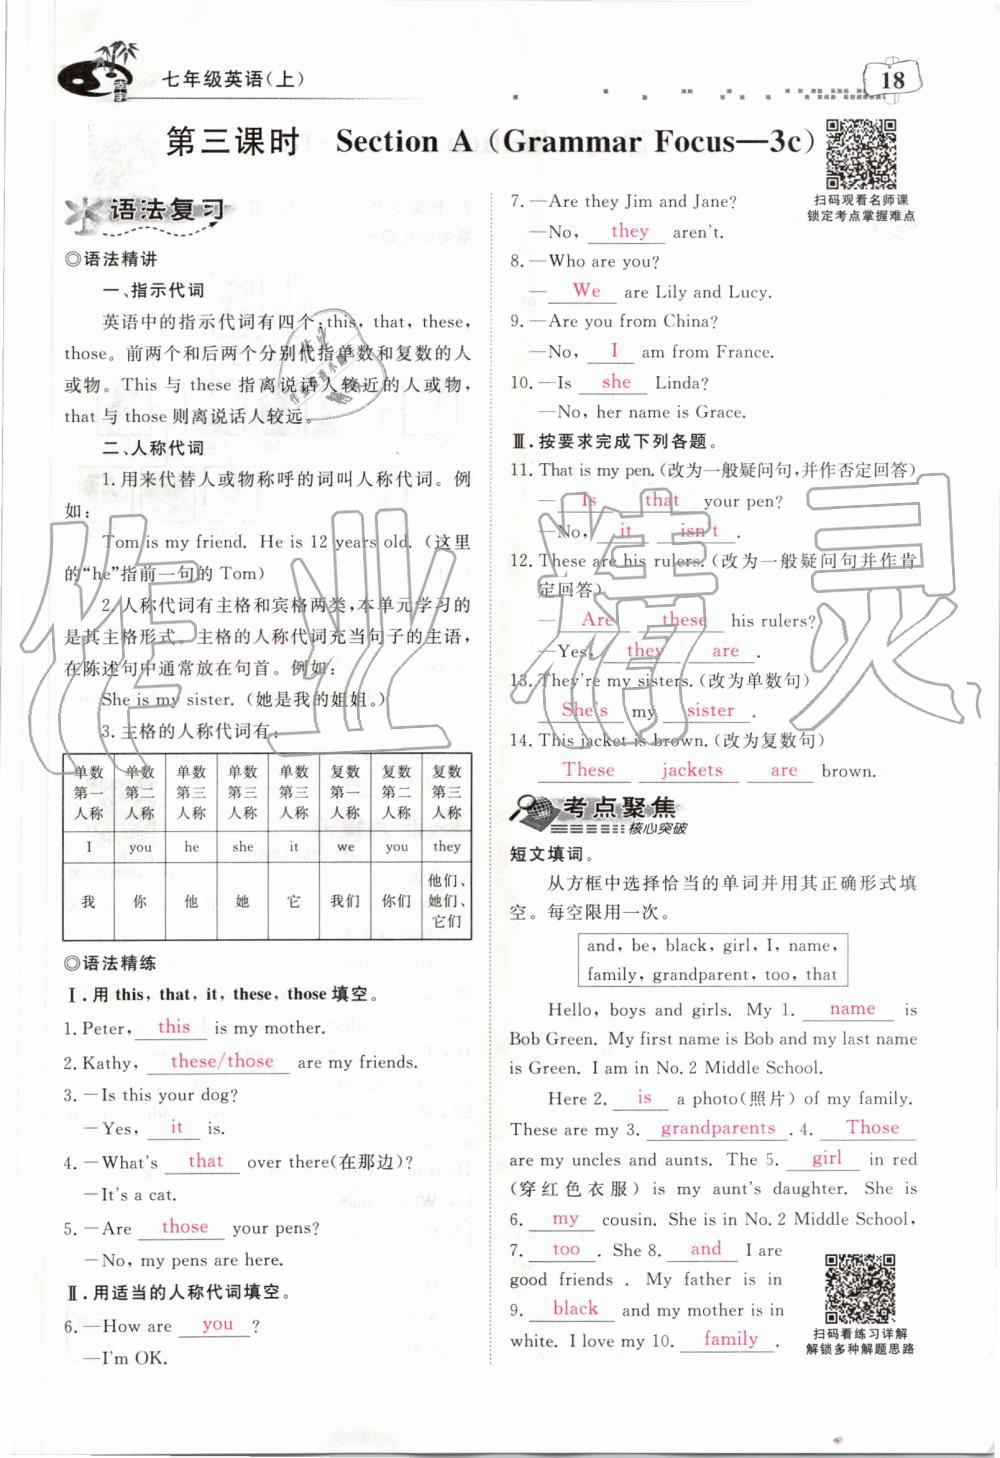 七年级英语(上)
18
第三课时 Section A (Grammar Focus—3c)
扫码观看名师课
锁定考点掌握难点
语法复习
◎语法精讲
一、指示代词
英语中的指示代词有四个:this, that, these,
those。前两个和后两个分别代指单数和复数的人
或物。This 与 these 指离说话人较近的人或物,
that 与 those 则离说话人较远。
二、人称代词
1.用来代替人或物称呼的词叫人称代词。例
如:
Tom is my friend. He is 12 years old.(这里
的“he”指前一句的 Tom)
2.人称代词有主格和宾格两类,本单元学习的
是其主格形式。主格的人称代词充当句子的主语,
在陈述句中通常放在句首。例如:
She is my sister.(她是我的姐姐。)
3.主格的人称代词有:
单数 单数 单数 单数 单数 复数 复数 复数
第一 第二 第三 第三 第三 第一 第二 第三
人称 人称 人称 人称 人称 人称 人称 人称
I you he she it we you they
我 你 他 她 它 我们 你们 他们、
她们、
它们
◎语法精练
Ⅰ.用 this, that, it, these, those 填空。
1. Peter, this is my mother.
2. Kathy, these/those are my friends.
3. —Is this your dog?
—Yes, it is.
4. —What's that over there(在那边)?
—It's a cat.
5. —Are those your pens?
—No, my pens are here.
Ⅱ.用适当的人称代词填空。
6. —How are you ?
—I'm OK.
7. —Are they Jim and Jane?
—No, they aren't.
8. —Who are you?
—We are Lily and Lucy.
9. —Are you from China?
—No, I am from France.
10. —Is she Linda?
—No, her name is Grace.
Ⅲ.按要求完成下列各题。
11. That is my pen.(改为一般疑问句,并作否定回答)
—Is that your pen?
—No, it isn't .
12. These are his rulers.(改为一般疑问句并作肯
定回答)
—Are these his rulers?
—Yes, they are .
13. They're my sisters.(改为单数句)
She's my sister .
14. This jacket is brown.(改为复数句)
These jackets are brown.
考点聚焦
核心突破
短文填词。
从方框中选择恰当的单词并用其正确形式填
空。每空限用一次。
and, be, black, girl, I, name,
family, grandparent, too, that
Hello, boys and girls. My 1. name is
Bob Green. My first name is Bob and my last name
is Green. I am in No. 2 Middle School.
Here 2. is a photo(照片) of my family.
These are my 3. grandparents . 4. Those
are my uncles and aunts. The 5. girl in red
(穿红色衣服) is my aunt's daughter. She is
6. my cousin. She is in No. 2 Middle School,
7. too . She 8. and I are
good friends . My father is in
9. black and my mother is in
white. I love my 10. family .
扫码看练习详解
解锁多种解题思路
作业精灵